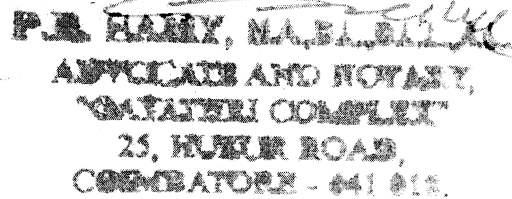 P.B. HARRY, M.A., B.L.,
ADVOCATE AND NOTARY,
"GAYATHRI COMPLEX"
25, HUZUR ROAD,
COIMBATORE - 641 018.